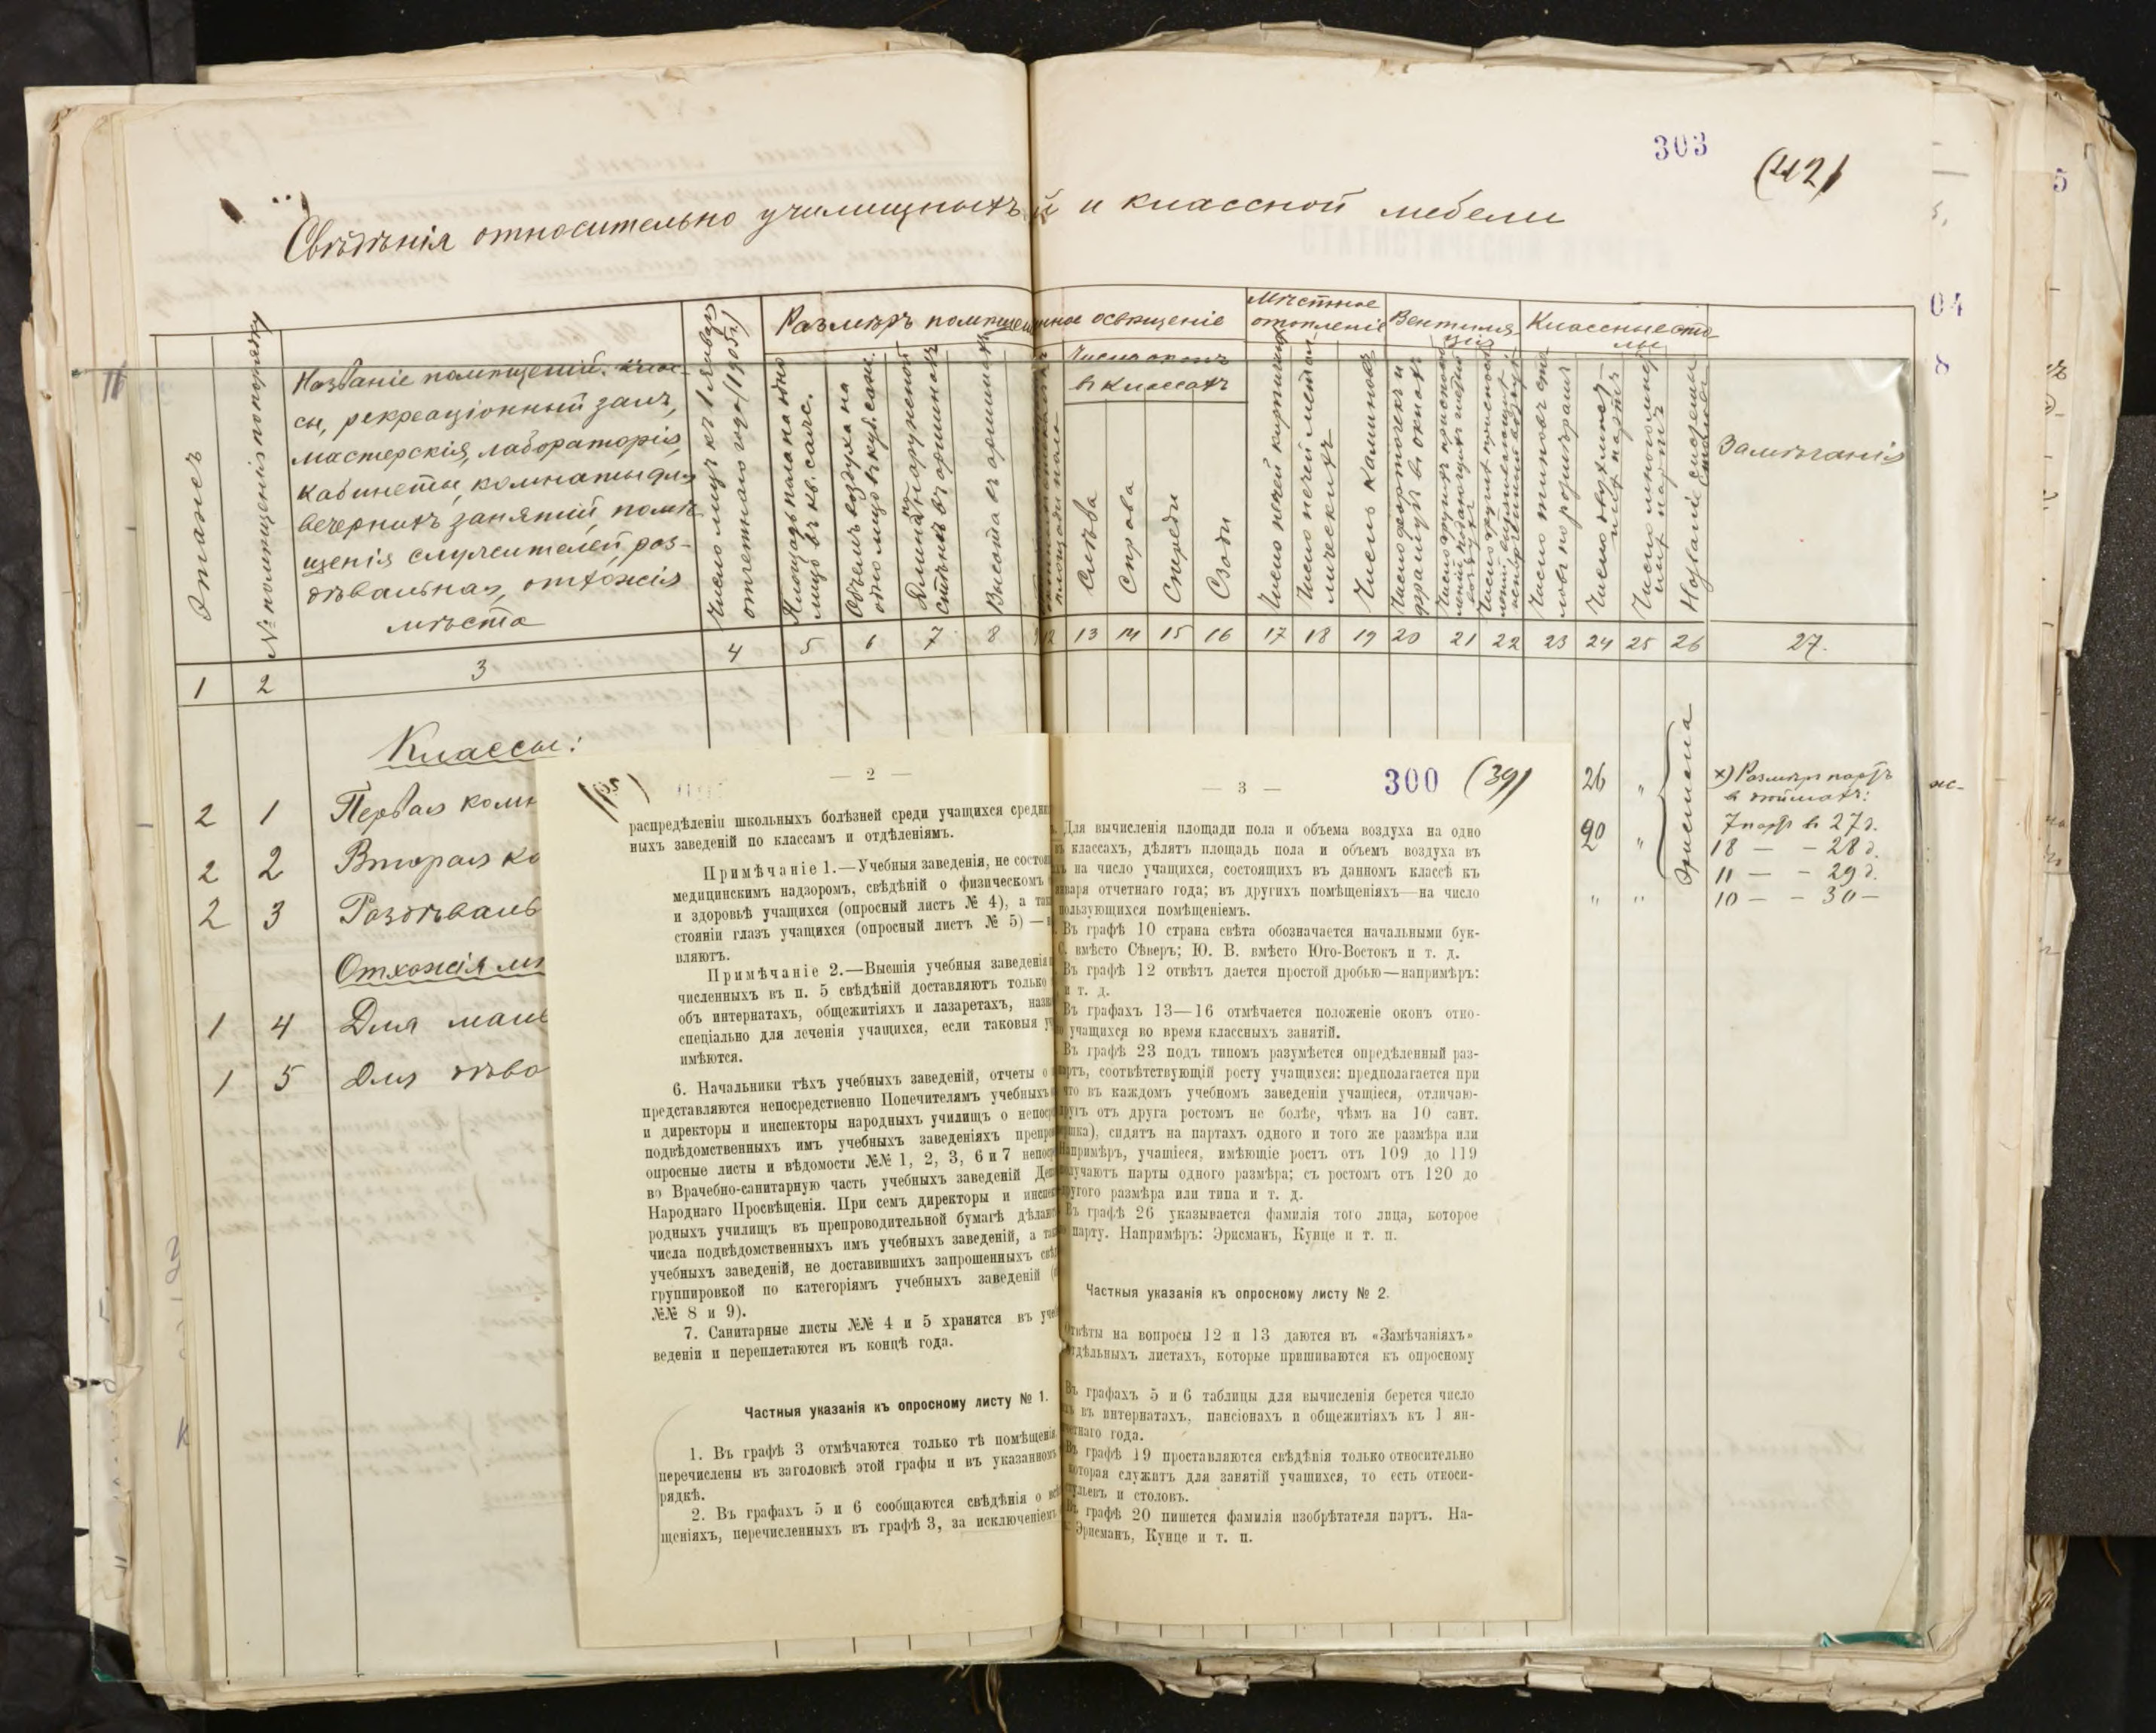 303 (42)
Свѣдѣнія относительно училищныхъ й и классной мебели
Этажъ
№ помѣщенія по порядку
Названіе помѣщеній: клас-
сы, рекреаціонный залъ,
мастерскія, лабораторія,
кабинеты, комнаты для
вечернихъ занятій, помѣ-
щенія служителей, раз-
дѣвальная, отхожія
мѣста
Число лицъ къ 1 Января
отчетнаго года (1905 г.)
Размѣръ помѣщен
Площадь пола на одно
лицо въ кв. саж.
Объемъ воздуха на
одно лицо въ куб. саж.
Длина наружной
стѣны въ аршинахъ
Высота въ аршинахъ
нное освѣщеніе
площади пола
Число оконъ
въ классахъ
Слѣва
Справа
Спереди
Сзади
Мѣстное
отопленіе
Число печей кирпичныхъ
Число печей метал-
лическихъ
Число каминовъ
Вентиля-
ція
Число форточекъ и
фрамугъ въ окнахъ
Классные сто-
лы
Число типовъ сто-
ловъ по размѣрамъ
Число двухмѣст-
ныхъ партъ
Число многомѣст-
ныхъ партъ
Названіе системы
Замѣчанія
1 2 3 4 5 6 7 8 12 13 14 15 16 17 18 19 20 21 22 23 24 25 26 27.
Классы:
2 1 Первая комн
2 2 Вторая ко
2 3 Раздѣваль
Отхожія мѣ
1 4 Для маль
1 5 Для дѣво
26 "
20 "
" "
Эрисмана
х) Размѣръ партъ
въ дюймахъ:
7 партъ въ 27 д.
18 — - 28 д.
11 — - 29 д.
10 — - 30 —
— 2 —
распредѣленіи школьныхъ болѣзней среди учащихся средни
ныхъ заведеній по классамъ и отдѣленіямъ.
Примѣчаніе 1.—Учебныя заведенія, не состоя
медицинскимъ надзоромъ, свѣдѣній о физическомъ
и здоровьѣ учащихся (опросный листъ № 4), а так
стояніи глазъ учащихся (опросный листъ № 5) —
вляютъ.
Примѣчаніе 2.—Высшія учебныя заведенія
численныхъ въ п. 5 свѣдѣній доставляютъ только
объ интернатахъ, общежитіяхъ и лазаретахъ, назн
спеціально для леченія учащихся, если таковыя у
имѣются.
6. Начальники тѣхъ учебныхъ заведеній, отчеты о
представляются непосредственно Попечителямъ учебныхъ
и директоры и инспекторы народныхъ училищъ о непоср
подвѣдомственныхъ имъ учебныхъ заведеніяхъ препро
опросные листы и вѣдомости №№ 1, 2, 3, 6 и 7 непоср
во Врачебно-санитарную часть учебныхъ заведеній Деп
Народнаго Просвѣщенія. При семъ директоры и инспек
родныхъ училищъ въ препроводительной бумагѣ дѣлают
числа подвѣдомственныхъ имъ учебныхъ заведеній, а так
учебныхъ заведеній, не доставившихъ запрошенныхъ свѣ
группировкой по категоріямъ учебныхъ заведеній (
№№ 8 и 9).
7. Санитарные листы №№ 4 и 5 хранятся въ уче
веденіи и переплетаются въ концѣ года.
Частныя указанія къ опросному листу № 1.
1. Въ графѣ 3 отмѣчаются только тѣ помѣщенія,
перечислены въ заголовкѣ этой графы и въ указанномъ
рядкѣ.
2. Въ графахъ 5 и 6 сообщаются свѣдѣнія о всѣ
щеніяхъ, перечисленныхъ въ графѣ 3, за исключеніемъ
— 3 — 300 (39)
Для вычисленія площади пола и объема воздуха на одно
въ классахъ, дѣлятъ площадь пола и объемъ воздуха въ
хъ на число учащихся, состоящихъ въ данномъ классѣ къ
января отчетнаго года; въ другихъ помѣщеніяхъ—на число
пользующихся помѣщеніемъ.
Въ графѣ 10 страна свѣта обозначается начальными бук-
С. вмѣсто Сѣверъ; Ю. В. вмѣсто Юго-Востокъ и т. д.
Въ графѣ 12 отвѣтъ дается простой дробью—напримѣръ:
и т. д.
Въ графахъ 13—16 отмѣчается положеніе оконъ отно-
учащихся во время классныхъ занятій.
Въ графѣ 23 подъ типомъ разумѣется опредѣленный раз-
партъ, соотвѣтствующій росту учащихся: предполагается при
что въ каждомъ учебномъ заведеніи учащіеся, отличаю-
другъ отъ друга ростомъ не болѣе, чѣмъ на 10 сант.
ршка), сидятъ на партахъ одного и того же размѣра или
Напримѣръ, учащіеся, имѣющіе ростъ отъ 109 до 119
получаютъ парты одного размѣра; съ ростомъ отъ 120 до
другого размѣра или типа и т. д.
Въ графѣ 26 указывается фамилія того лица, которое
парту. Напримѣръ: Эрисманъ, Кунце и т. п.
Частныя указанія къ опросному листу № 2.
Отвѣты на вопросы 12 и 13 даются въ «Замѣчаніяхъ»
отдѣльныхъ листахъ, которые пришиваются къ опросному
Въ графахъ 5 и 6 таблицы для вычисленія берется число
хъ въ интернатахъ, пансіонахъ и общежитіяхъ къ 1 ян-
четнаго года.
Въ графѣ 19 проставляются свѣдѣнія только относительно
которая служитъ для занятій учащихся, то есть относи-
стульевъ и столовъ.
Въ графѣ 20 пишется фамилія изобрѣтателя партъ. На-
Эрисманъ, Кунце и т. п.
04
8
5